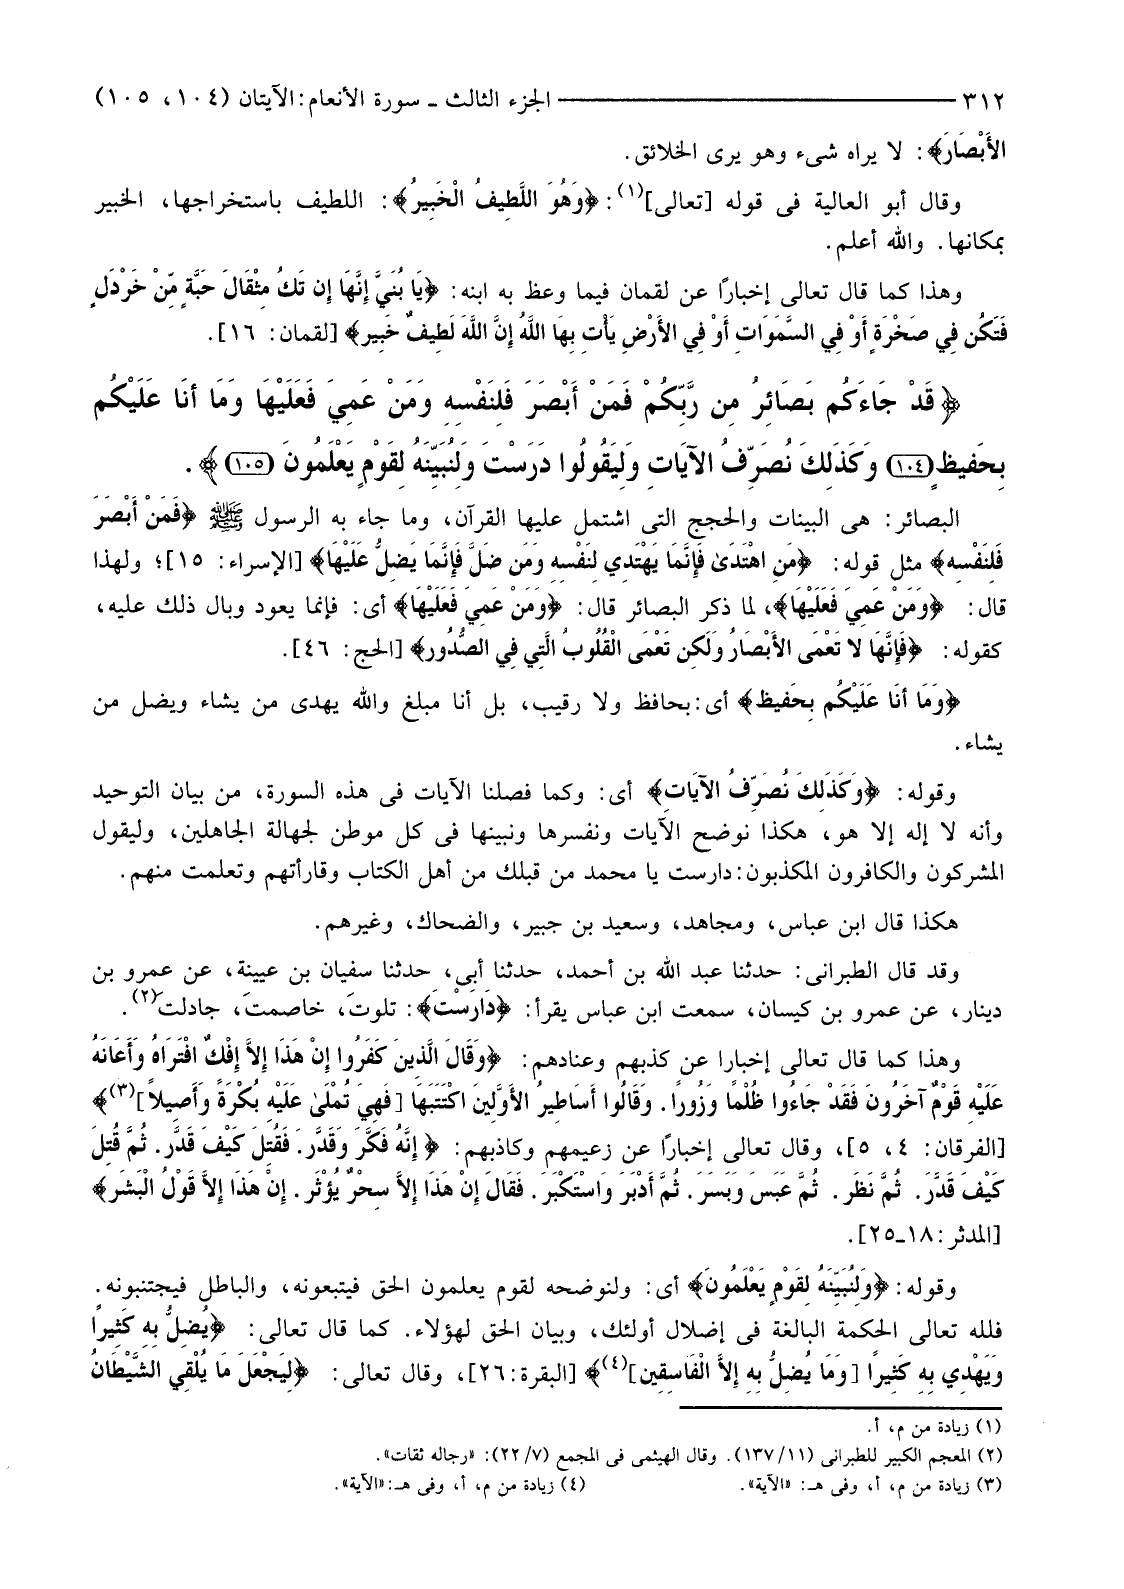 ٣١٢ ــــــــ الجزء الثالث ـ سورة الأنعام: الآيتان (١٠٤، ١٠٥)
الأَبْصَارَ﴾: لا يراه شىء وهو يرى الخلائق.
وقال أبو العالية فى قوله [تعالى](١): ﴿وَهُوَ اللَّطِيفُ الْخَبِيرُ﴾: اللطيف باستخراجها، الخبير
بمكانها. والله أعلم.
وهذا كما قال تعالى إخبارًا عن لقمان فيما وعظ به ابنه: ﴿يَا بُنَيَّ إِنَّهَا إِن تَكُ مِثْقَالَ حَبَّةٍ مِّنْ خَرْدَلٍ
فَتَكُن فِي صَخْرَةٍ أَوْ فِي السَّمَوَاتِ أَوْ فِي الأَرْضِ يَأْتِ بِهَا اللَّهُ إِنَّ اللَّهَ لَطِيفٌ خَبِير﴾ [لقمان: ١٦].
﴿قَدْ جَاءَكُم بَصَائِرُ مِن رَّبِّكُمْ فَمَنْ أَبْصَرَ فَلِنَفْسِهِ وَمَنْ عَمِيَ فَعَلَيْهَا وَمَا أَنَا عَلَيْكُم
بِحَفِيظٍ (١٠٤) وَكَذَلِكَ نُصَرِّفُ الآيَاتِ وَلِيَقُولُوا دَرَسْتَ وَلِنُبَيِّنَهُ لِقَوْمٍ يَعْلَمُونَ (١٠٥)﴾.
البصائر: هى البينات والحجج التى اشتمل عليها القرآن، وما جاء به الرسول ﷺ ﴿فَمَنْ أَبْصَرَ
فَلِنَفْسِهِ﴾ مثل قوله: ﴿مَنِ اهْتَدَىٰ فَإِنَّمَا يَهْتَدِي لِنَفْسِهِ وَمَن ضَلَّ فَإِنَّمَا يَضِلُّ عَلَيْهَا﴾ [الإسراء: ١٥]؛ ولهذا
قال: ﴿وَمَنْ عَمِيَ فَعَلَيْهَا﴾، لما ذكر البصائر قال: ﴿وَمَنْ عَمِيَ فَعَلَيْهَا﴾ أى: فإنما يعود وبال ذلك عليه،
كقوله: ﴿فَإِنَّهَا لا تَعْمَى الأَبْصَارُ وَلَكِن تَعْمَى الْقُلُوبُ الَّتِي فِي الصُّدُور﴾ [الحج: ٤٦].
﴿وَمَا أَنَا عَلَيْكُم بِحَفِيظ﴾ أى: بحافظ ولا رقيب، بل أنا مبلغ والله يهدى من يشاء ويضل من
يشاء.
وقوله: ﴿وَكَذَلِكَ نُصَرِّفُ الآيَاتِ﴾ أى: وكما فصلنا الآيات فى هذه السورة، من بيان التوحيد
وأنه لا إله إلا هو، هكذا نوضح الآيات ونفسرها ونبينها فى كل موطن لجهالة الجاهلين، وليقول
المشركون والكافرون المكذبون: دارست يا محمد من قبلك من أهل الكتاب وقارأتهم وتعلمت منهم.
هكذا قال ابن عباس، ومجاهد، وسعيد بن جبير، والضحاك، وغيرهم.
وقد قال الطبرانى: حدثنا عبد الله بن أحمد، حدثنا أبى، حدثنا سفيان بن عيينة، عن عمرو بن
دينار، عن عمرو بن كيسان، سمعت ابن عباس يقرأ: ﴿دَارَسْتَ﴾: تلوتَ، خاصمتَ، جادلتَ(٢).
وهذا كما قال تعالى إخبارا عن كذبهم وعنادهم: ﴿وَقَالَ الَّذِينَ كَفَرُوا إِنْ هَذَا إِلاَّ إِفْكٌ افْتَرَاهُ وَأَعَانَهُ
عَلَيْهِ قَوْمٌ آخَرُونَ فَقَدْ جَاءُوا ظُلْمًا وَزُورًا. وَقَالُوا أَسَاطِيرُ الأَوَّلِينَ اكْتَتَبَهَا [فَهِيَ تُمْلَىٰ عَلَيْهِ بُكْرَةً وَأَصِيلاً](٣)﴾
[الفرقان: ٤، ٥]، وقال تعالى إخبارًا عن زعيمهم وكاذبهم: ﴿إِنَّهُ فَكَّرَ وَقَدَّرَ. فَقُتِلَ كَيْفَ قَدَّرَ. ثُمَّ قُتِلَ
كَيْفَ قَدَّرَ. ثُمَّ نَظَرَ. ثُمَّ عَبَسَ وَبَسَرَ. ثُمَّ أَدْبَرَ وَاسْتَكْبَرَ. فَقَالَ إِنْ هَذَا إِلاَّ سِحْرٌ يُؤْثَر. إِنْ هَذَا إِلاَّ قَوْلُ الْبَشَر﴾
[المدثر: ١٨ـ٢٥].
وقوله: ﴿وَلِنُبَيِّنَهُ لِقَوْمٍ يَعْلَمُونَ﴾ أى: ولنوضحه لقوم يعلمون الحق فيتبعونه، والباطل فيجتنبونه.
فلله تعالى الحكمة البالغة فى إضلال أولئك، وبيان الحق لهؤلاء. كما قال تعالى: ﴿يُضِلُّ بِهِ كَثِيرًا
وَيَهْدِي بِهِ كَثِيرًا [وَمَا يُضِلُّ بِهِ إِلاَّ الْفَاسِقِين](٤)﴾ [البقرة: ٢٦]، وقال تعالى: ﴿لِيَجْعَلَ مَا يُلْقِي الشَّيْطَانُ
(١) زيادة من م، أ.
(٢) المعجم الكبير للطبرانى (١٣٧/١١). وقال الهيثمى فى المجمع (٢٢/٧): «رجاله ثقات».
(٣) زيادة من م، أ، وفى هـ: «الآية». (٤) زيادة من م، أ، وفى هـ: «الآية».